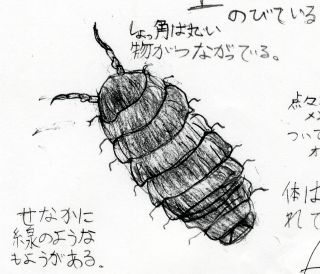 のびている
しょっ角は丸い
物がつながっている。
せなかに
線のような
もようがある。
点々
メン
ついて
オ
体は
れて